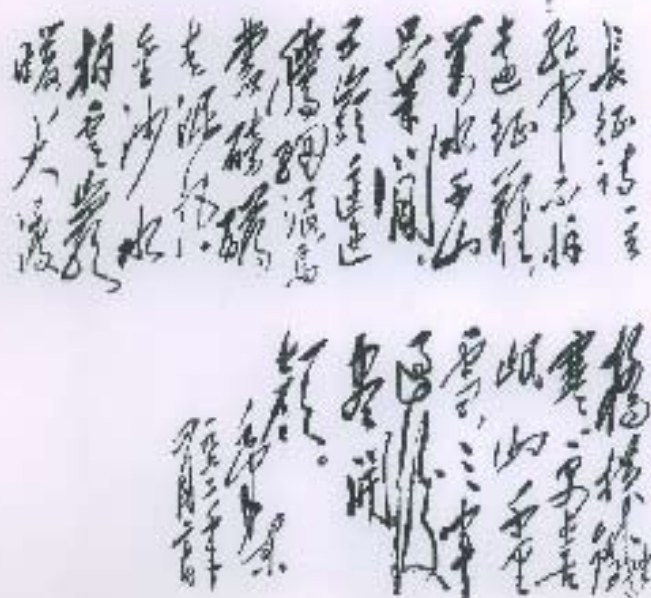 長征詩一首
紅軍不怕
遠征難,
萬水千山
只等閒。
五嶺逶迤
騰細浪,烏
蒙磅礴
走泥丸。
金沙水
拍雲崖
暖,大渡
橋橫鐵索
寒。更喜
岷山千里
雪,三軍
過後
盡開
顏。
毛澤東